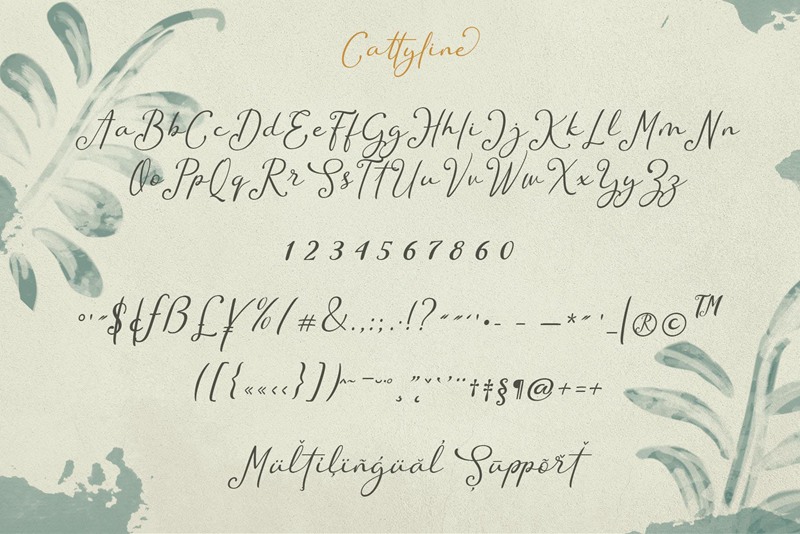 Cattyline
AaBbCcDdEeFfGgHhIiJjKkLlMmNn
OoPpQqRrSsTtUuVvWwXxYyZz
1 2 3 4 5 6 7 8 6 0
°'"$¢ƒß£¥%/#&.,:;..·!?"“”‘’•- – —*"'_|®©™
([{««‹‹}])^~¯˘˙¨¸”˛ˇ‘’¨†‡§¶@+=+
Müļťiļïñģüăĺ Şūppõřť